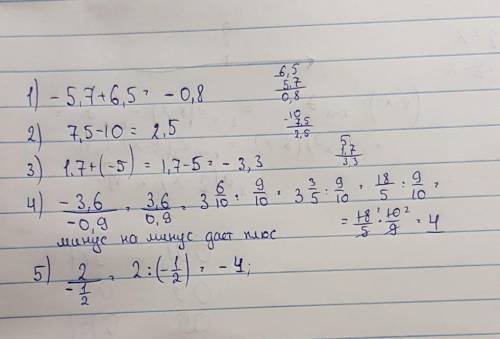 1) -5,7+6,5 = -0,8
6,5
5,7
0,8
2) 7,5-10 = 2,5
-10
7,5
2,5
3) 1,7+(-5) = 1,7-5 = -3,3
5
1,7
3,3
4) -3,6/-0,9 = 3,6/0,9 = 3 6/10 : 9/10 = 3 3/5 : 9/10 = 18/5 : 9/10 =
= 18/5 · 10/9 = 4
минус на минус дает плюс
5) 2/-1/2 = 2:(-1/2) = -4;